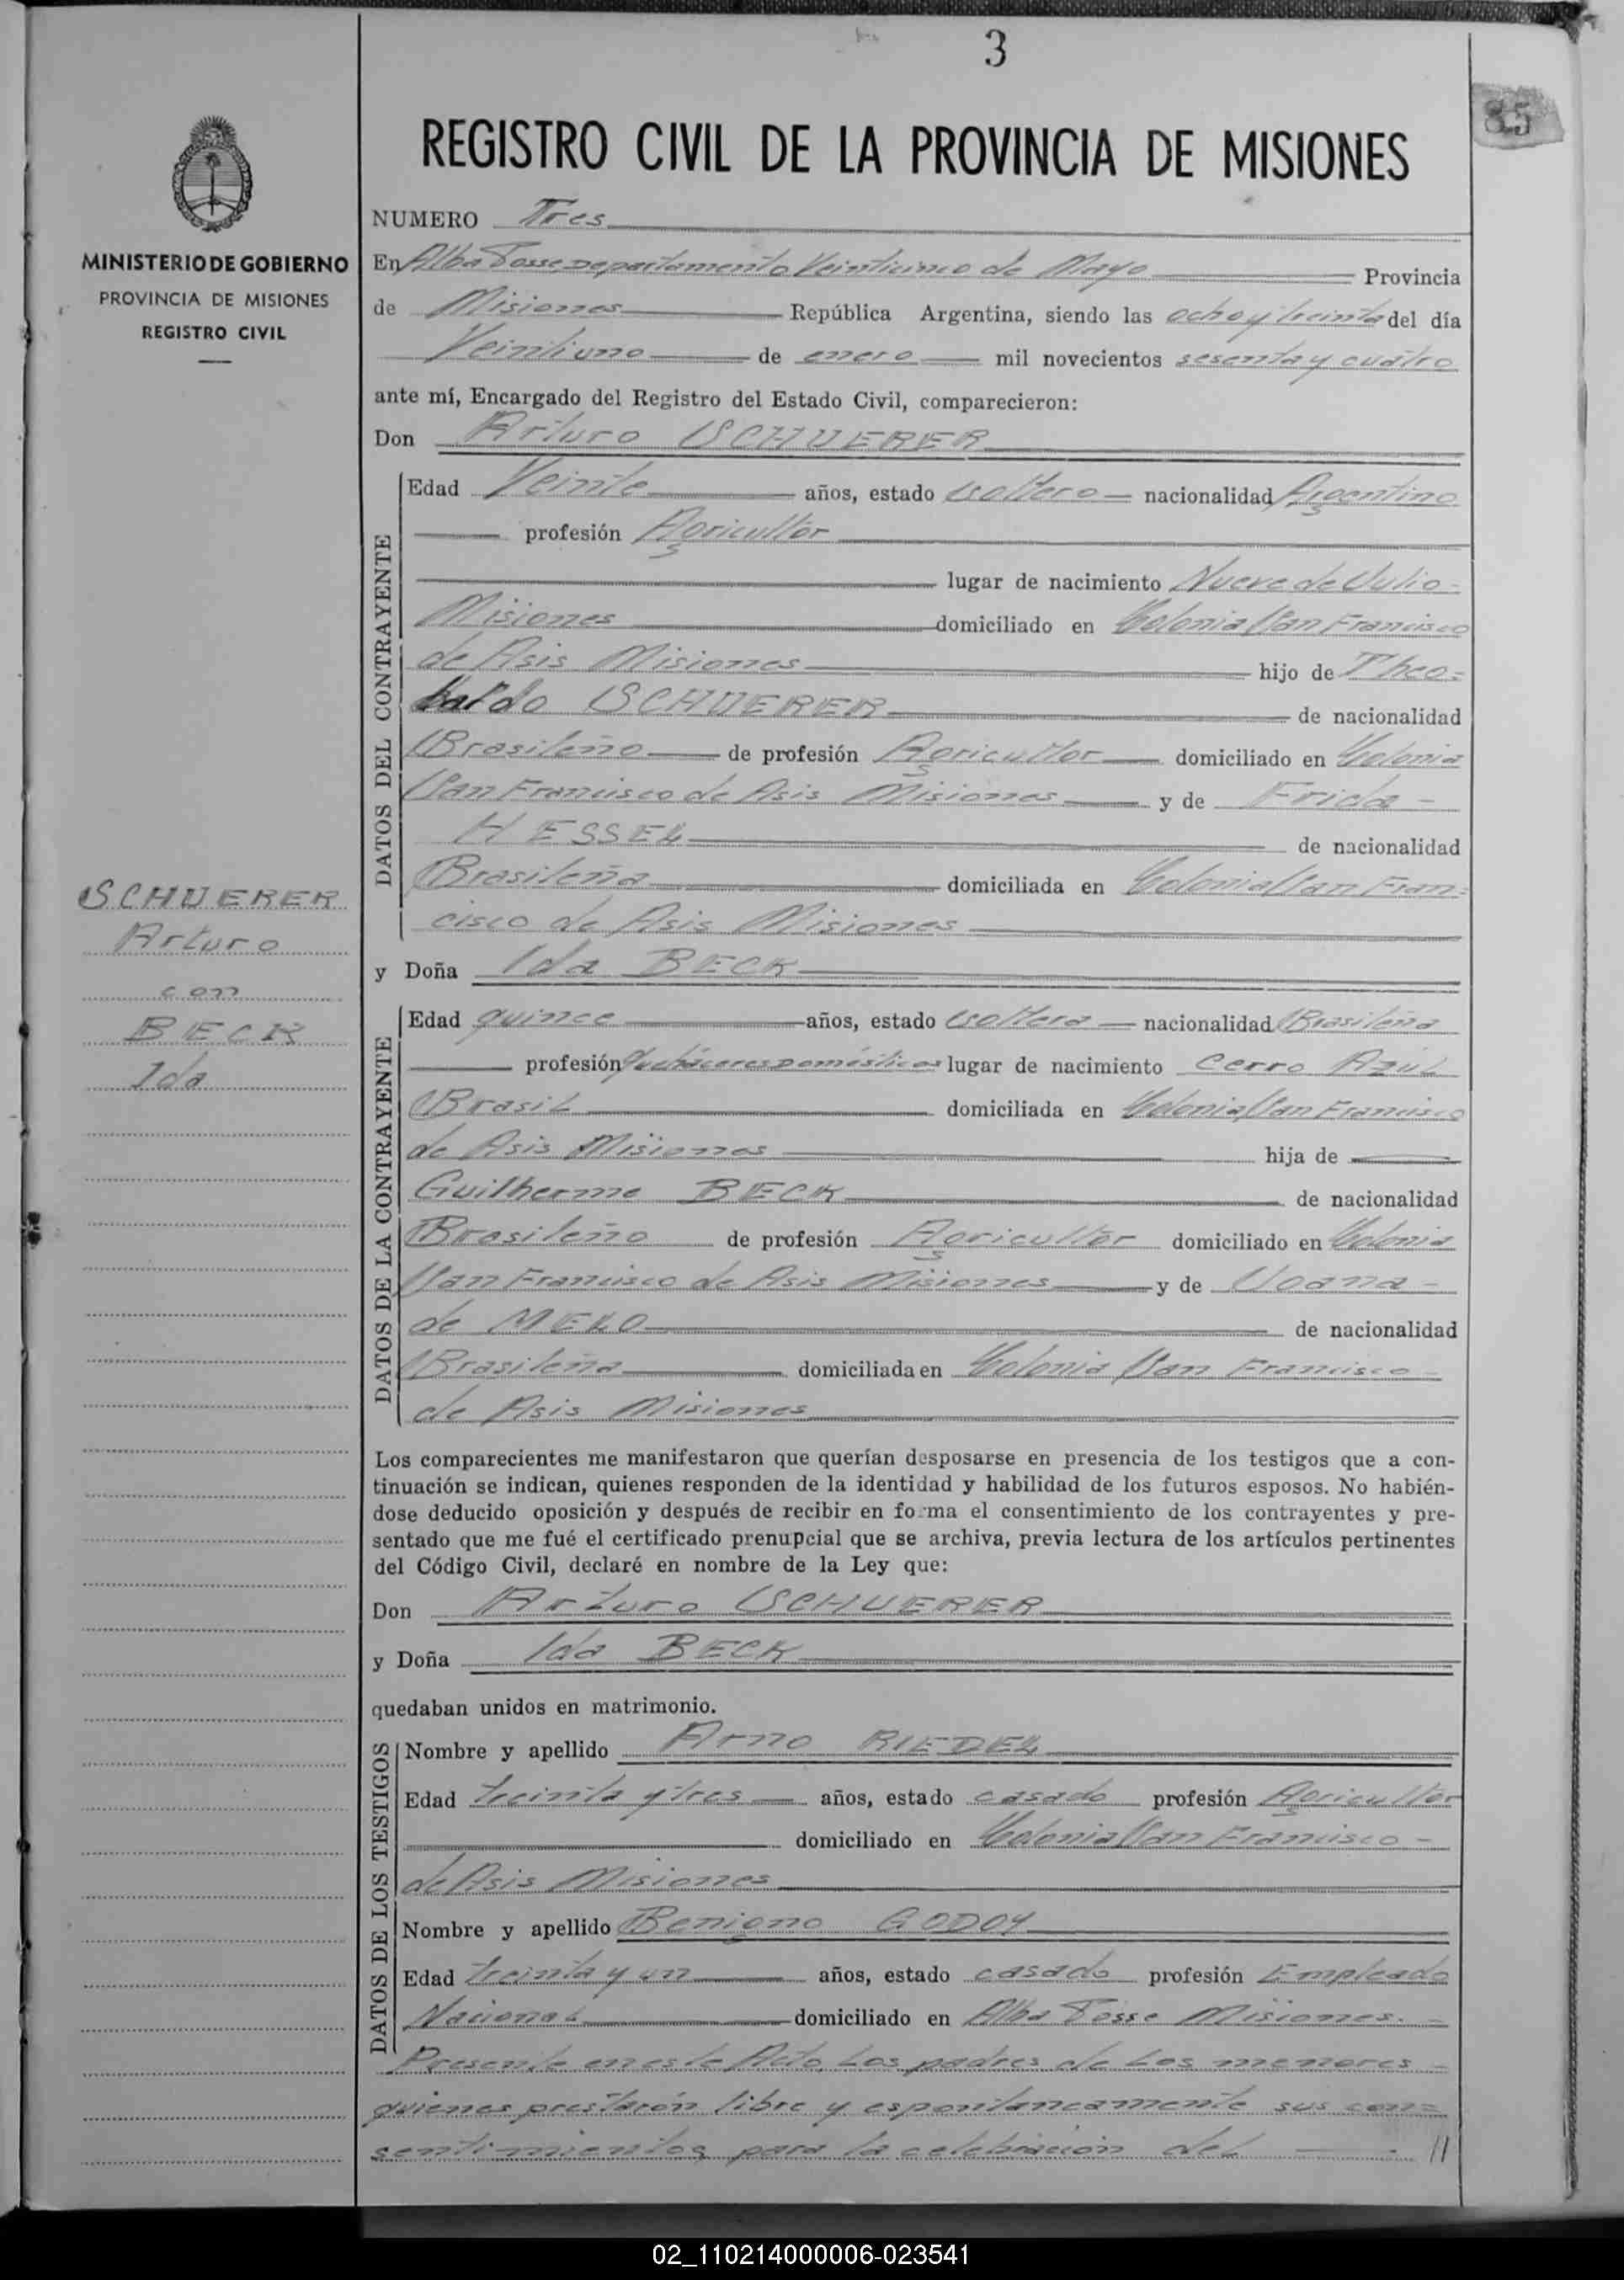 3
85
REGISTRO CIVIL DE LA PROVINCIA DE MISIONES
MINISTERIO DE GOBIERNO
PROVINCIA DE MISIONES
REGISTRO CIVIL
NUMERO Tres
En Alba Posse Departamento Veinticinco de Mayo Provincia
de Misiones República Argentina, siendo las ocho y treinta del día
Veintiuno de enero mil novecientos sesenta y cuatro
ante mí, Encargado del Registro del Estado Civil, comparecieron:
Don Arturo SCHUERER
DATOS DEL CONTRAYENTE
Edad Veinte años, estado soltero nacionalidad Argentino
profesión Agricultor
lugar de nacimiento Nueve de Julio
Misiones domiciliado en Colonia San Francisco
de Asis Misiones hijo de Theo=
baldo SCHUERER de nacionalidad
Brasileño de profesión Agricultor domiciliado en Colonia
San Francisco de Asis Misiones y de Frida
HESSEL de nacionalidad
Brasileña domiciliada en Colonia San Fran=
cisco de Asis Misiones
y Doña Ida BECK
SCHUERER
Arturo
con
BECK
Ida
DATOS DE LA CONTRAYENTE
Edad quince años, estado soltera nacionalidad Brasileña
profesión Quehaceres Domésticos lugar de nacimiento Cerro Azul
Brasil domiciliada en Colonia San Francisco
de Asis Misiones hija de
Guilherme BECK de nacionalidad
Brasileño de profesión Agricultor domiciliado en Colonia
San Francisco de Asis Misiones y de Joana
de MELO de nacionalidad
Brasileña domiciliada en Colonia San Francisco
de Asis Misiones
Los comparecientes me manifestaron que querían desposarse en presencia de los testigos que a con-
tinuación se indican, quienes responden de la identidad y habilidad de los futuros esposos. No habién-
dose deducido oposición y después de recibir en forma el consentimiento de los contrayentes y pre-
sentado que me fué el certificado prenupcial que se archiva, previa lectura de los artículos pertinentes
del Código Civil, declaré en nombre de la Ley que:
Don Arturo SCHUERER
y Doña Ida BECK
quedaban unidos en matrimonio.
DATOS DE LOS TESTIGOS
Nombre y apellido Arno RIEDEL
Edad treinta y tres años, estado casado profesión Agricultor
domiciliado en Colonia San Francisco
de Asis Misiones
Nombre y apellido Benigno GODOY
Edad treinta y un años, estado casado profesión Empleado
Nacional domiciliado en Alba Posse Misiones.
Presente en este Acto los padres de los menores
quienes prestarón libre y espontaneamente sus con=
sentimientos para la celebración del //
02_110214000006-023541